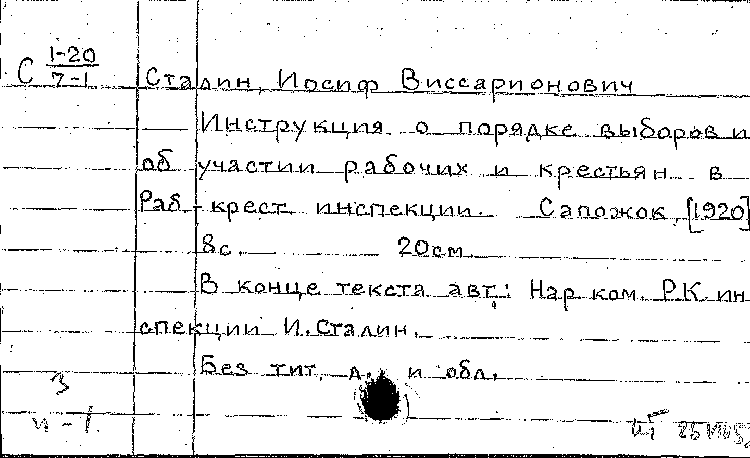 С 1-20
7-1
Сталин, Иосиф Виссарионович
Инструкция о порядке выборов и
об участии рабочих и крестьян в
Раб.-крест. инспекции. Сапожок, [1920]
8с. 20см.
В конце текста авт.: Нар.ком. Р.К.ин
спекции И.Сталин.
Без тит. л. и обл.
3
и-1